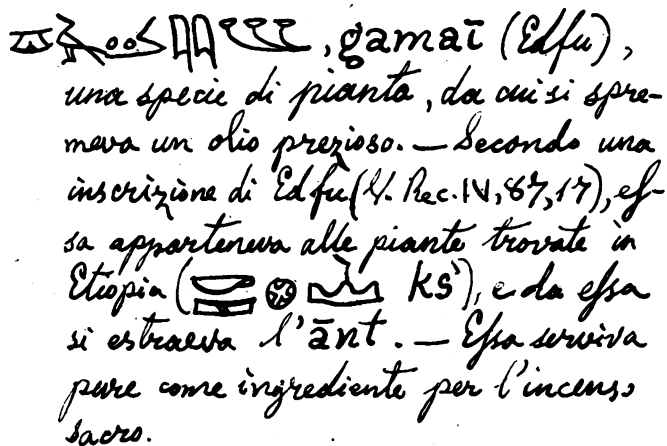 , gamaī (Edfu),
una specie di pianta, da cui si spre-
meva un olio prezioso. — Secondo una
inscrizione di Edfù (V. Rec. IV, 87, 17), es-
sa apparteneva alle piante trovate in
Etiopia ( kš), e da essa
si estraeva l'ānt. — Essa serviva
pure come ingrediente per l'incenso
sacro.